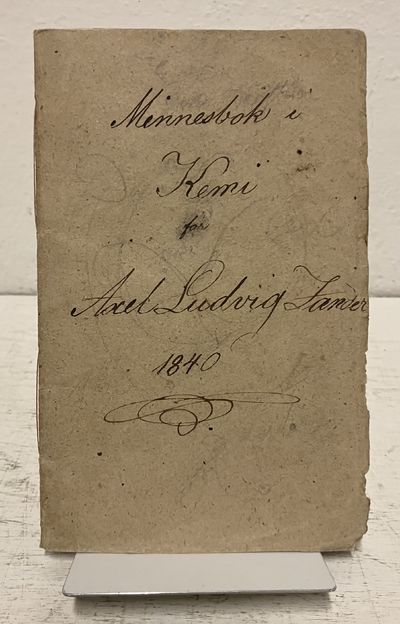 Minnesbok i
Kemi
för
Axel Ludvig Zander
1840